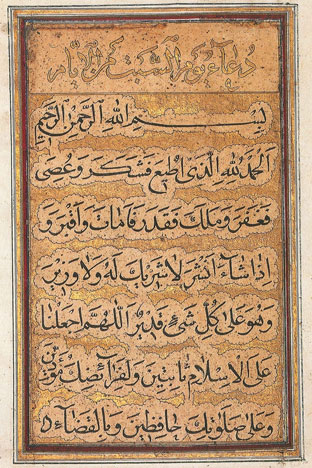 دعاء يوم السبت من الايام
بسم الله الرحمن الرحيم
الحمد لله الذي اطيع فشكر وعصى
فغفر وملك فقدر فامات واقبر و
اذا شاء انشر لا شريك له ولا وزير
وهو على كل شئ قدير اللهم اجعلنا
على الاسلام ثابتين ولفرائضك مؤدين
وعلى صلوتك حافظين وبالقضاء